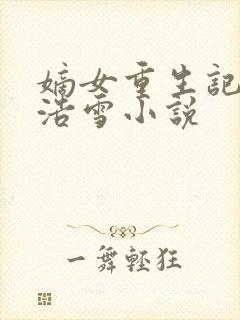 嫡女重生記
浩雪小説
一舞輕狂